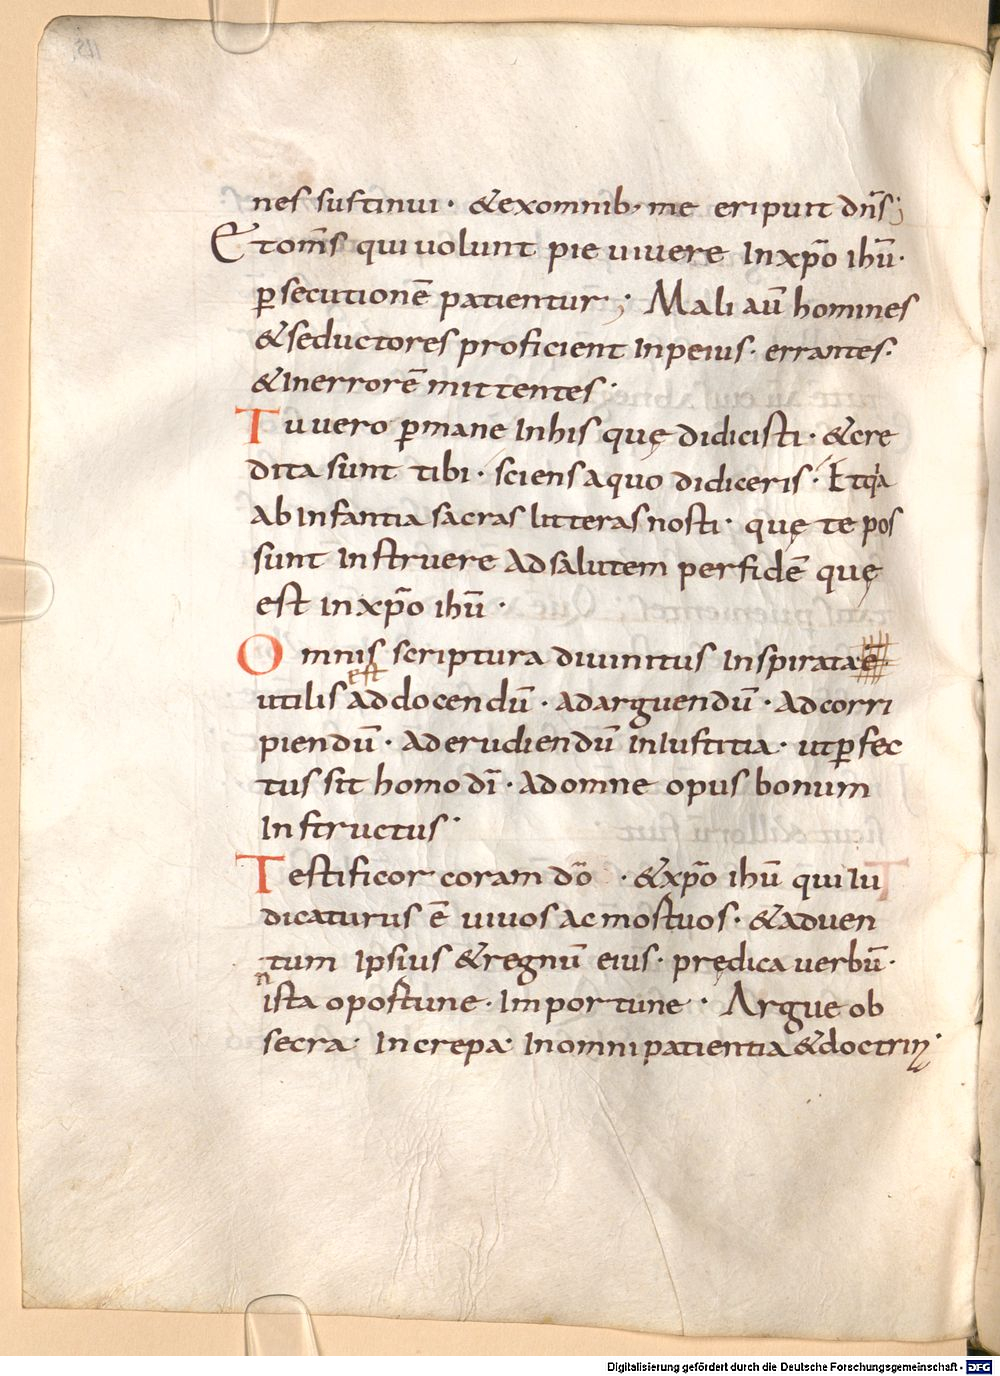 nes sustinui · &exomnib; me eripuit dn̄s;
Et om̄s qui uolunt pie uiuere Inxp̄o ihū·
ꝑsecutionē patientur ; Mali aū homines
&seductores proficient Inpeius · errantes·
&Inerrorē mittentes ·
Tu uero ꝑmane Inhis quę didicisti · &cre
dita sunt tibi · sciens aquo didiceris · Et qa
ab Infantia sacras litteras nosti · quę te pos
sunt Instruere Adsalutem per fidē quę
est Inxp̄o ihū ·
Omnis scriptura diuinitus Inspirata ē·
est
utilis addocendū · adarguendū · Adcorri
piendū · Aderudiendū InIustitia · utꝑfec
tus sit homo dī · Adomne opus bonum
Instructus ·
Testificor coram dō · &xp̄o ihū qui Iu
dicaturus ē uiuos ac mortuos · &aduen
tum Ipsius &regnū eius · prędica uerbū ·
n
ista oportune · Importune · Argue ob
secra · Increpa · Inomni patientia &doctrin
Digitalisierung gefördert durch die Deutsche Forschungsgemeinschaft - DFG